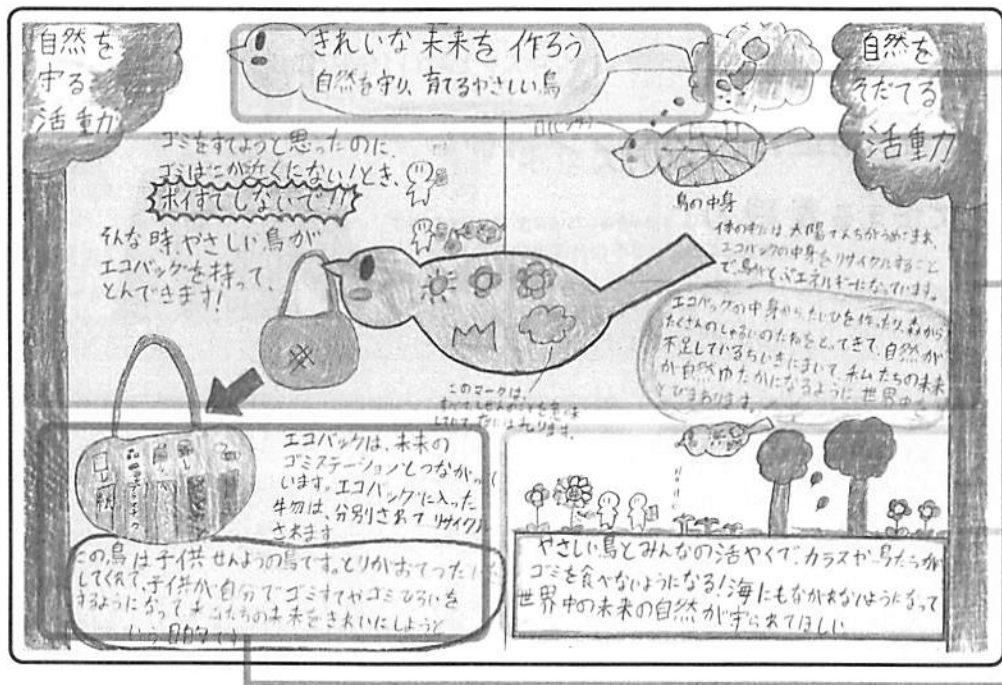 きれいな未来を作ろう
自然を守り、育てるやさしい鳥
自然を
守る
活動力
自然を
そだてる
活動力
ゴミをすてようと思ったのに、
ゴミばこが近くにない!とき、
ポイすてしないで!!
そんな時やさしい鳥が
エコバッグを持って、
とんできます!
鳥の中身
体の中には太陽でんちがうめこまれ、
エコバックの中身をリサイクルすること
で鳥がとぶエネルギーになっています。
エコバックの中身からたいひを作ったり、森から
たくさんのしゅるいのたねをとってきて、自然が
不足しているちいきにまいて、私たちの未来
が自然ゆたかになるように世界中
とびまわります。
このマークは、
エコバックは、未来の
ゴミステーションとつながって
います。エコバッグに入った
物は、分別されてリサイクル
されます
この鳥は子供せんようの鳥です。とりがおてつだい
してくれて、子供が自分でゴミすてやゴミひろいを
するようになって たちの未来をきれいにしようと
いう目的で
やさしい鳥とみんなの活やくで、カラスや鳥たちが
ゴミを食べないようになる!海にもながれないようになって
世界中の未来の自然が守られてほしい